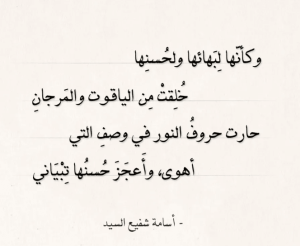 وكأنّها لِبَهائها ولحُسنِها
خُلِقتْ مِن الياقوت والمَرجانِ
حارت حروفُ النور في وصفِ التي
أهوى، وأَعجَزَ حُسنُها تِبْيَاني
- أسامة شفيع السيد